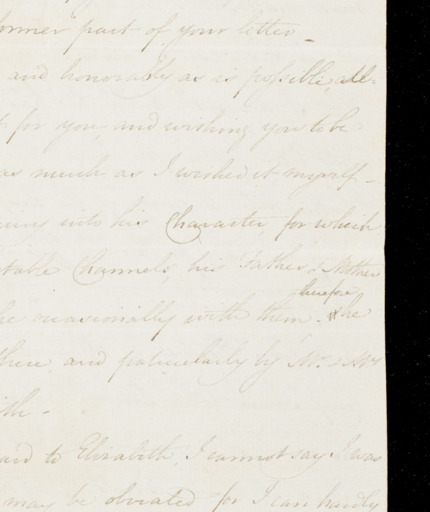 former part of your letter -
and honorable as is possible, all-
for you, and wishing you to be
as much as I wished it myself -
into his Character, for which
Channels, his Father & Mother
therefore
he occasionally with them. he
there, and particularly by Mr. & Mrs
to Elizabeth, I cannot say I was
may be obviated for I can hardly